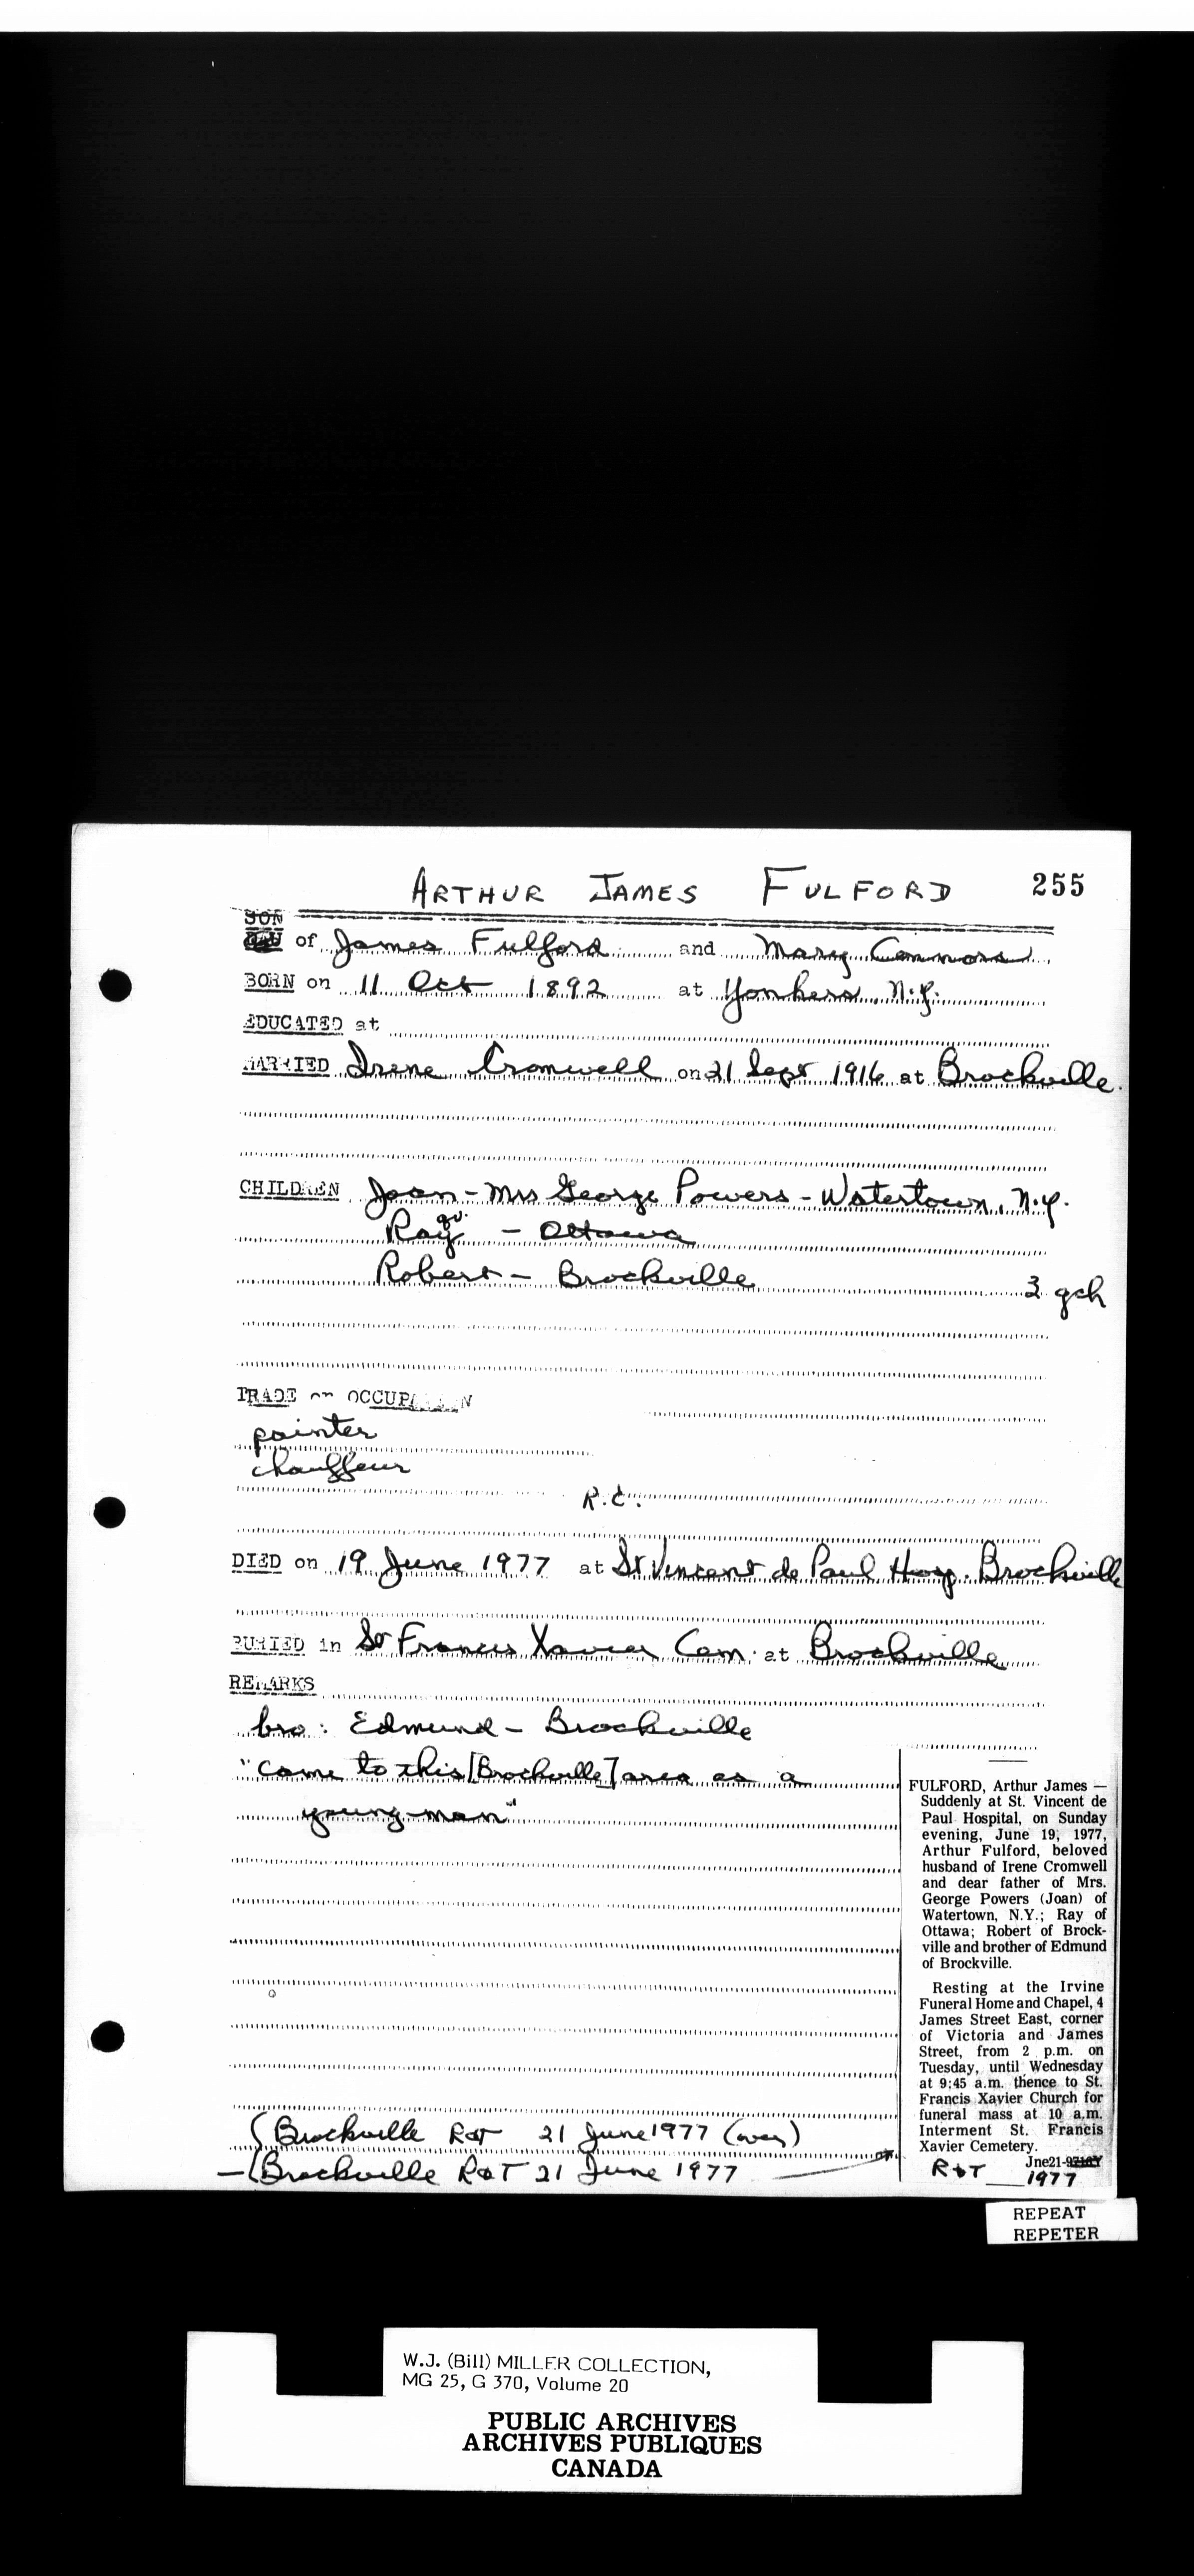 ARTHUR JAMES FULFORD 255
SON
of James Fulford and Mary Connors
BORN on 11 Oct 1892 at Yonkers, N.Y.
EDUCATED at
MARRIED Irene Cromwell on 21 Sept 1916 at Brockville.
CHILDREN Joan - Mrs George Powers - Watertown, N.Y.
qv.
Ray - Ottawa
Robert - Brockville
3 gch
TRADE or OCCUPATION
painter
chauffeur
R.C.
DIED on 19 June 1977 at St Vincent de Paul Hosp. Brockville
BURIED in St Francis Xavier Cem. at Brockville
REMARKS
bro: Edmund - Brockville
"came to this [Brockville] area as a
young man"
FULFORD, Arthur James —
Suddenly at St. Vincent de
Paul Hospital, on Sunday
evening, June 19, 1977,
Arthur Fulford, beloved
husband of Irene Cromwell
and dear father of Mrs.
George Powers (Joan) of
Watertown, N.Y.; Ray of
Ottawa; Robert of Brock-
ville and brother of Edmund
of Brockville.
Resting at the Irvine
Funeral Home and Chapel, 4
James Street East, corner
of Victoria and James
Street, from 2 p.m. on
Tuesday, until Wednesday
at 9:45 a.m. thence to St.
Francis Xavier Church for
funeral mass at 10 a.m.
Interment St. Francis
Xavier Cemetery.
Jne21-
R&T 1977
(Brockville R&T 21 June 1977 (over)
- (Brockville R&T 21 June 1977
REPEAT
REPETER
W.J. (Bill) MILLER COLLECTION,
MG 25, G 370, Volume 20
PUBLIC ARCHIVES
ARCHIVES PUBLIQUES
CANADA